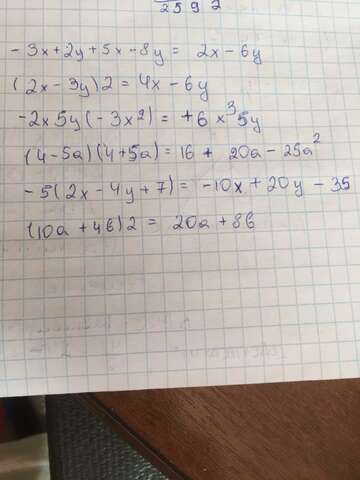 2592
-3x+2y+5x-8y = 2x-6y
(2x-3y)2 = 4x-6y
-2x5y(-3x²) = +6x³5y
(4-5a)(4+5a) = 16 + 20a - 25a²
-5(2x-4y+7) = -10x+20y-35
(10a+4b)2 = 20a+8b